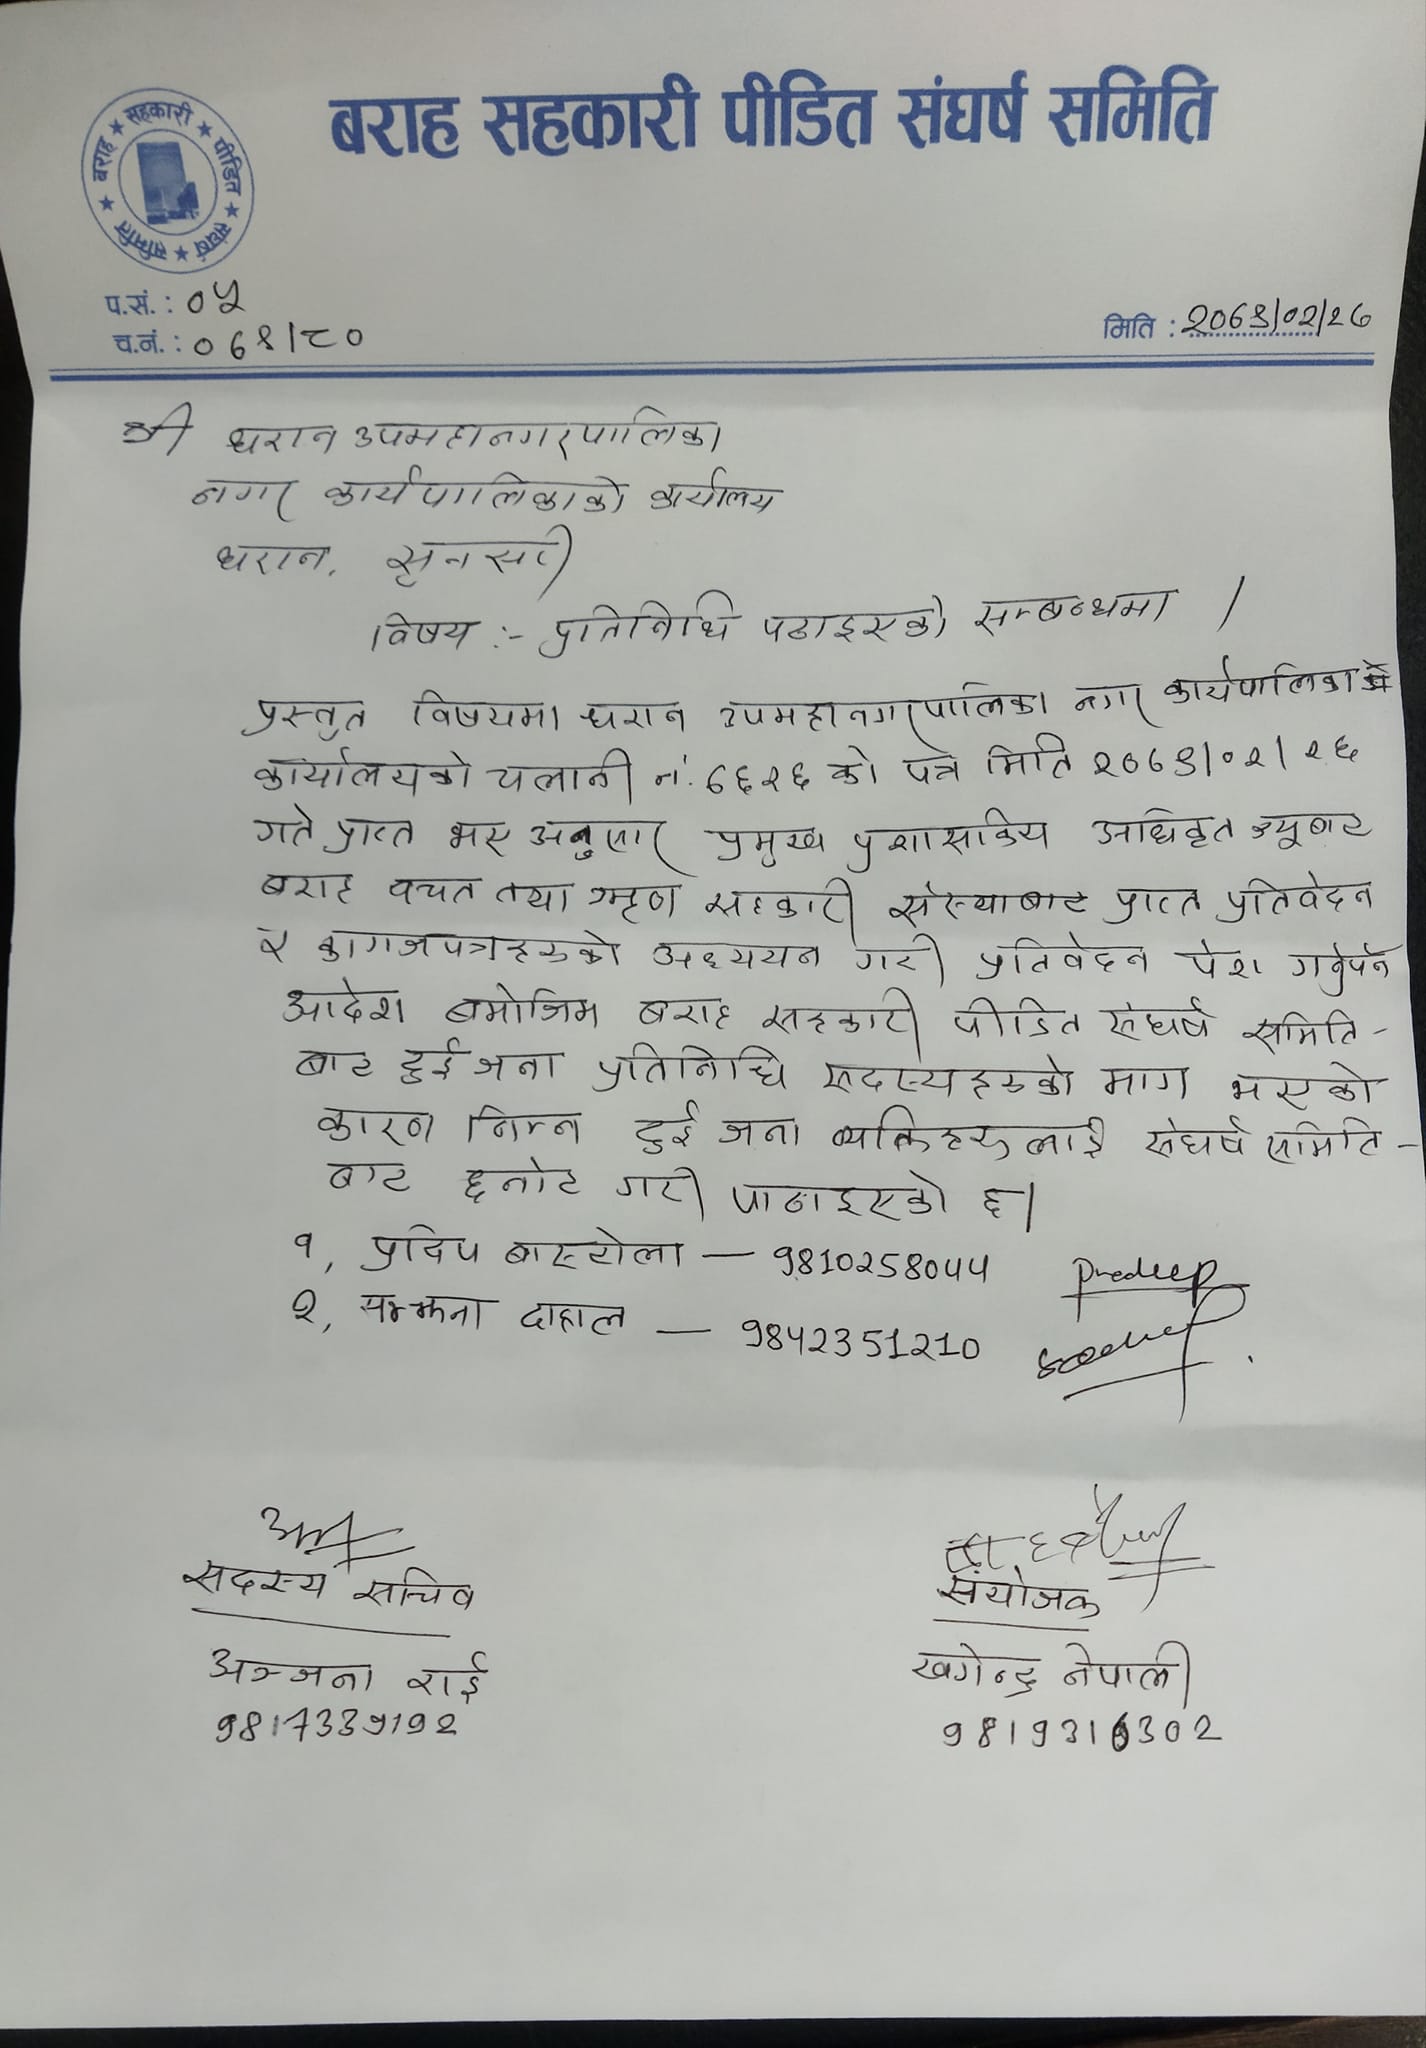 बराह सहकारी पीडित संघर्ष समिति
बराह ★ सहकारी ★ पीडित ★ संघर्ष ★ समिति ★
प.सं.: ०५
च.नं.: ०७९/८०
मिति : २०७९/०२/२७
श्री धरान उपमहानगरपालिका
नगर कार्यपालिकाको कार्यालय
धरान, सुनसरी
विषय :- प्रतिनिधि पठाइएको सम्बन्धमा ।
प्रस्तुत विषयमा धरान उपमहानगरपालिका नगर कार्यपालिकाको
कार्यालयको चलानी नं. ७६२६ को पत्र मिति २०७९/०२/२६
गते प्राप्त भए अनुसार प्रमुख प्रशासकिय अधिकृत ज्यूबाट
बराह वचत तथा ऋण सहकारी संस्थाबाट प्राप्त प्रतिवेदन
र कागजपत्रहरुको अध्ययन गरी प्रतिवेदन पेश गर्नुपर्ने
आदेश बमोजिम बराह सहकारी पीडित संघर्ष समिति-
बाट दुई जना प्रतिनिधि सदस्यहरुको माग भएको
कारण निम्न दुई जना व्यक्तिहरुलाई संघर्ष समिति-
बाट छनोट गरी पाठाइएको छ।
१, प्रदिप बास्टोला — 9810258044 Pradeep
२, सम्झना दाहाल — 9842351210
सदस्य सचिव
संयोजक
अञ्जना राई
खगेन्द्र नेपाली
9817339192
9819316302